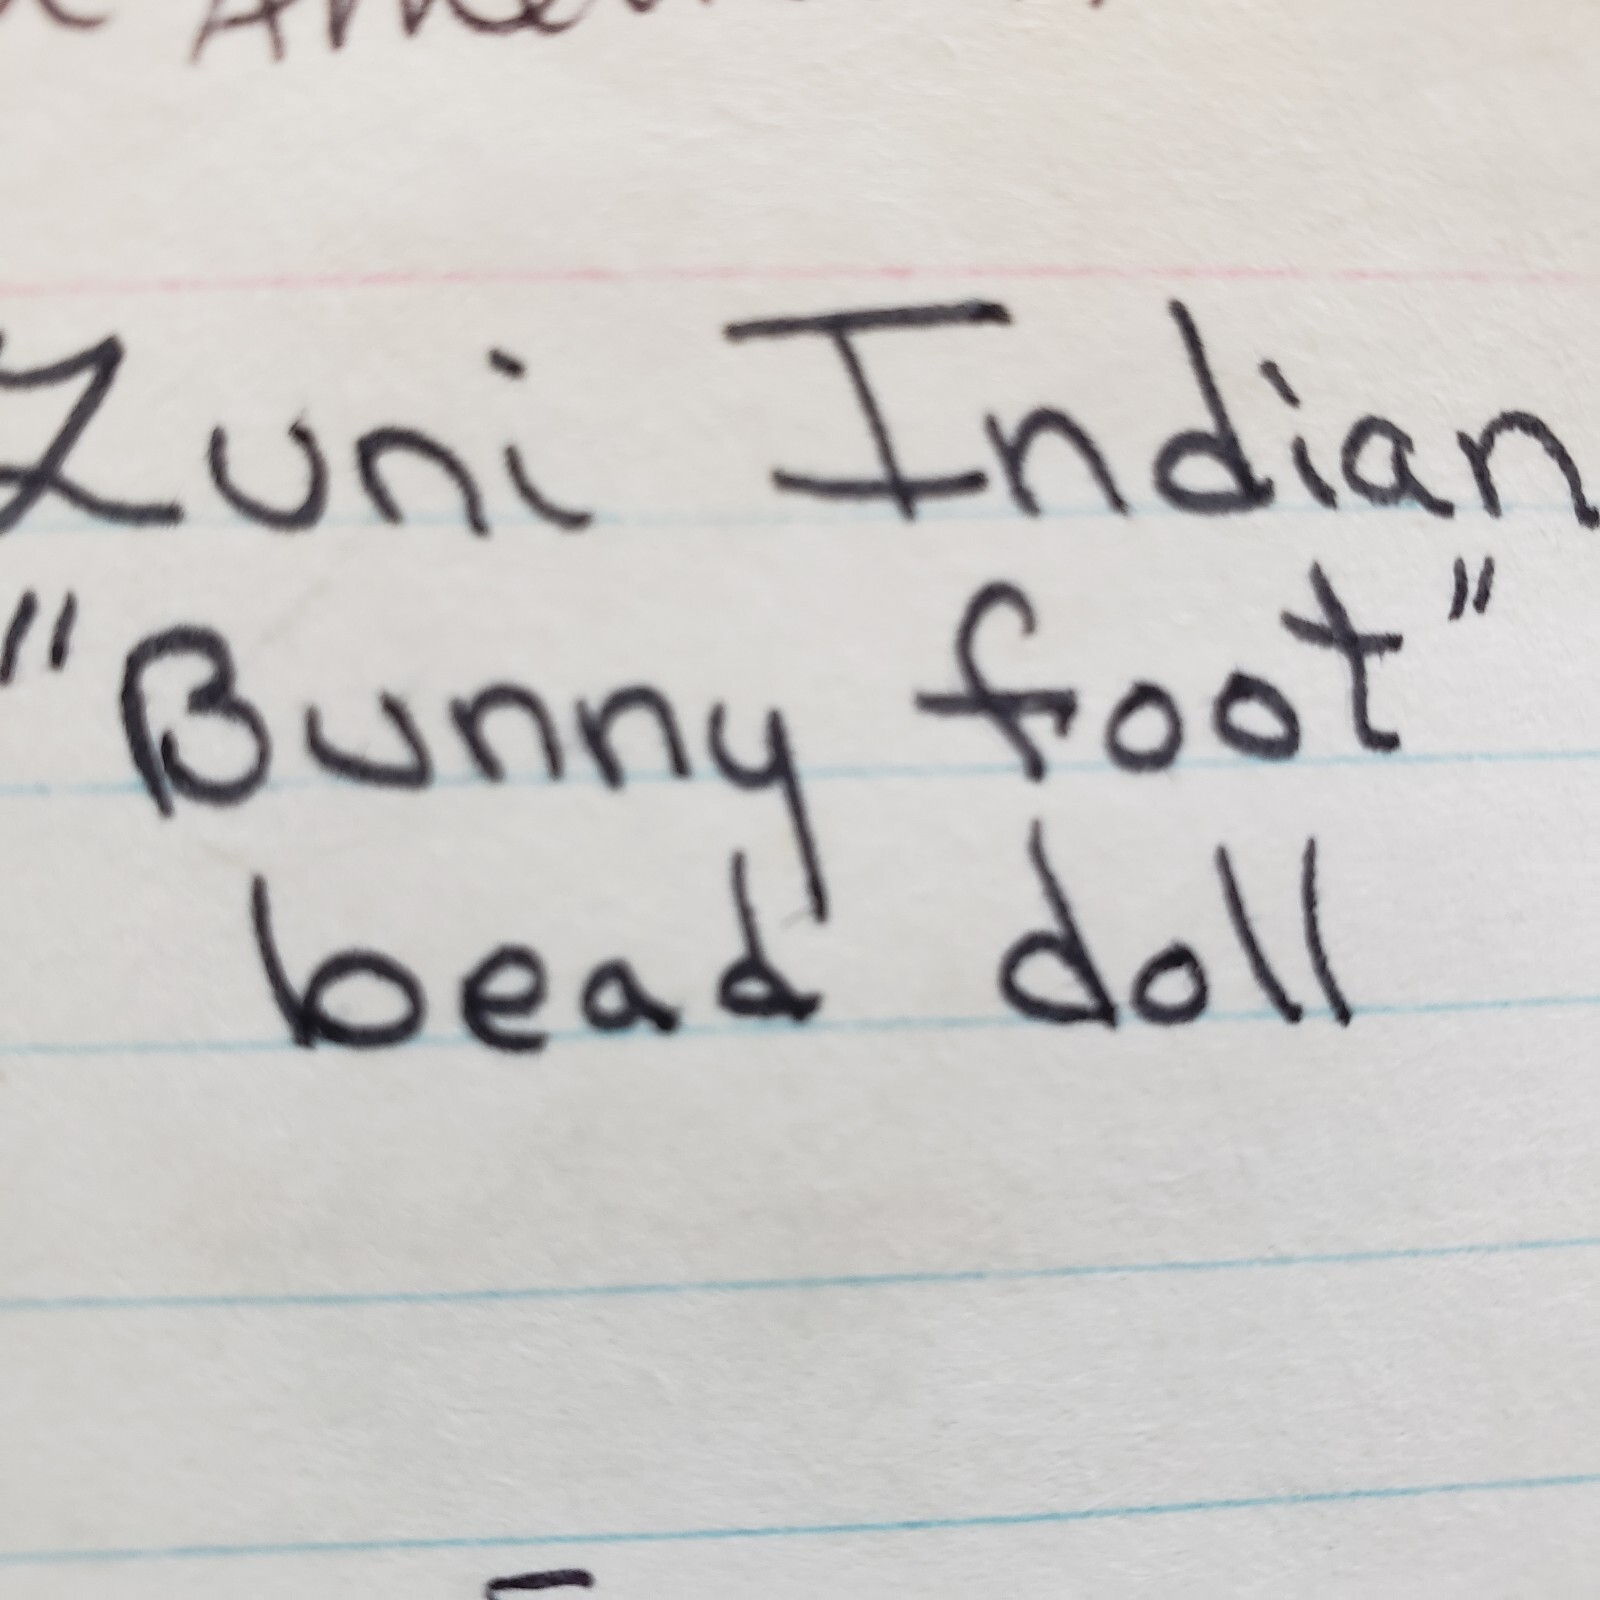 Zuni Indian
"Bunny foot"
bead doll